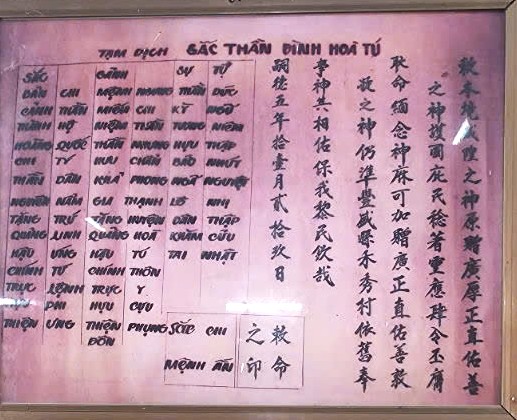 TẠM DỊCH SẮC THẦN ĐÌNH HOÀ TÚ
敕本境城隍之神原贈廣厚正直佑善
之神護國庇民稔著靈應肆今丕膺
耿命緬念神庥可加贈廣正直佑善敦
之神仍準豐盛縣禾秀村依舊奉
事神其相佑保我黎民欽哉
嗣德五年拾壹月貳拾玖日
SẮC CẢNH SỰ TỰ
BẢN CHI MỆNH NGUNG THẦN ĐỨC
CẢNH THẦN MIẾN CHI KỲ NGŨ
THÀNH HỘ NIỆM THẦN TƯƠNG NIÊN
HOÀNG QUỐC THẦN NHƯNG HỰU THẬP
CHI TÝ HƯU CHUẨN BẢO NHỨT
THẦN DÂN KHẢ PHONG NGÃ NGUYỆT
NGUYÊN NẪM GIA THẠNH LÊ NHỊ
TẶNG TRỨ TẶNG HUYỆN DÂN THẬP
QUẢNG LINH QUẢNG HOÀ KHÂM CỬU
HẬU ỨNG HẬU TÚ TAI NHẬT
CHÍNH TỨ CHÍNH THÔN
TRỰC LỆNH TRỰC Y
PHI HỰU CỰU
THIỆN ƯNG THIỆN PHỤNG
ĐÔN
SẮC CHI
MỆNH ẤN
敕命
之印